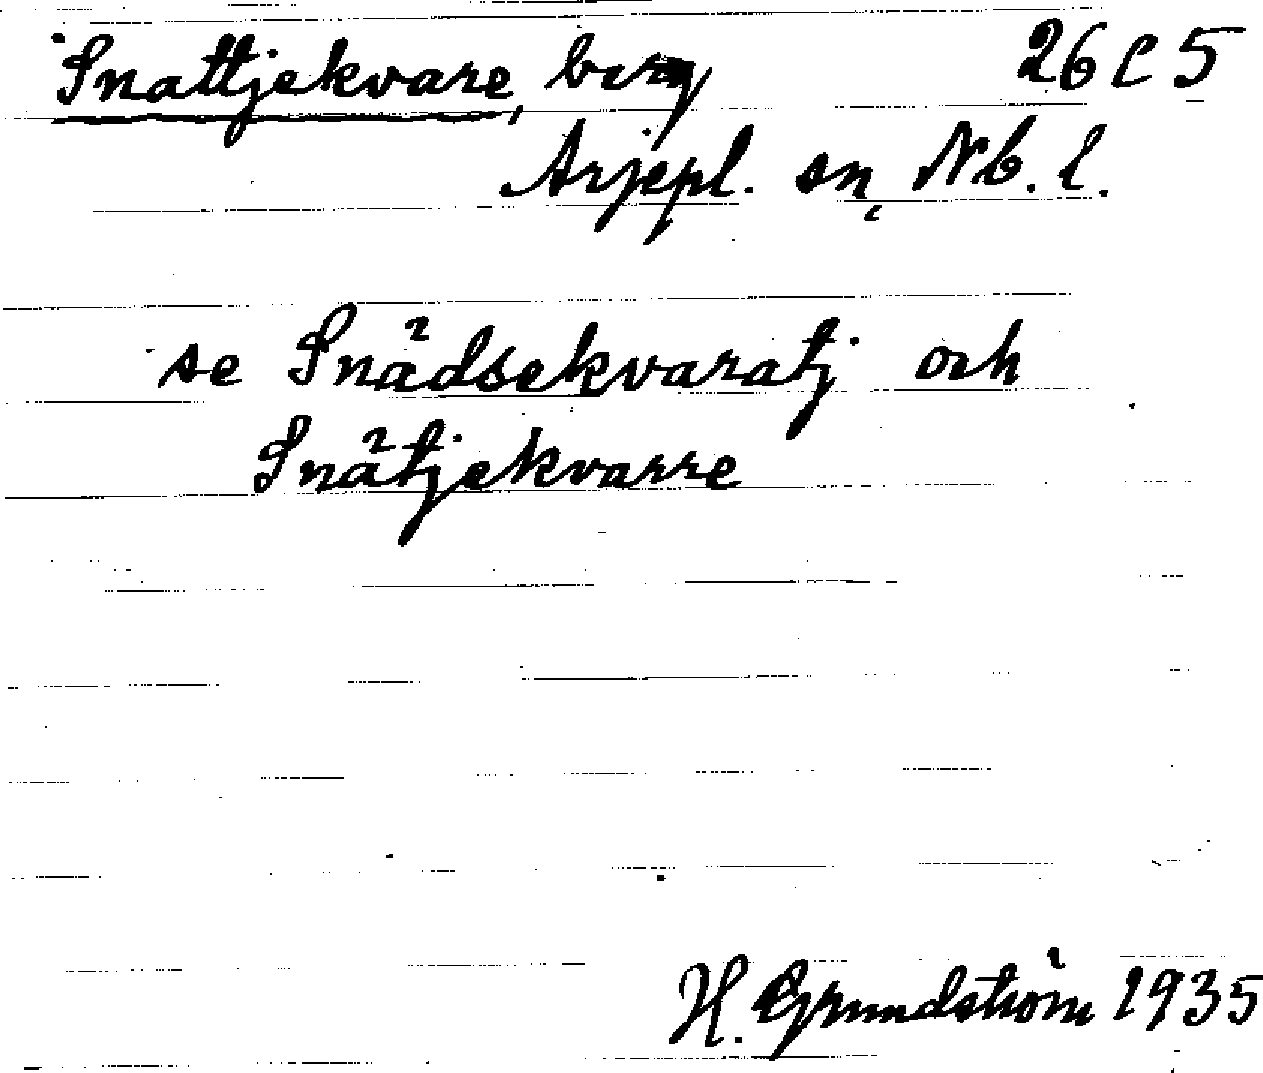 Snattjekvare, berg 26 C 5
Arjepl. sn, Nb. l.
se Snådsekvaratj och
Snåtjekvarre
H. Grundström 1935